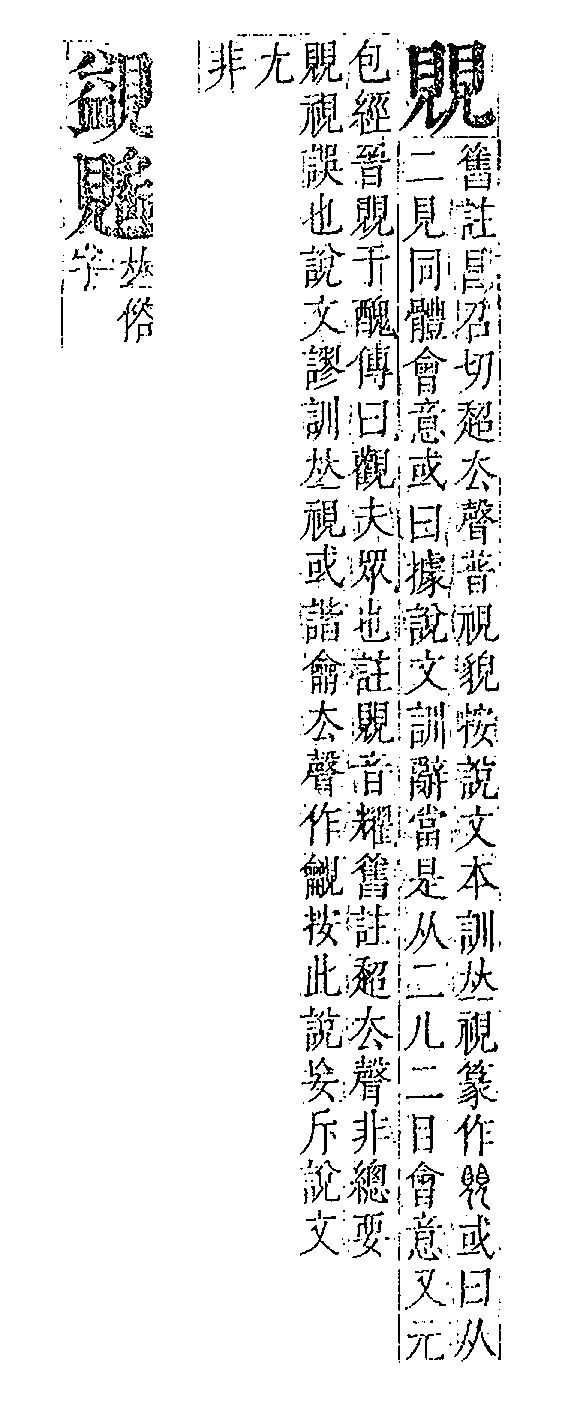 覞
舊註昌召切超去聲普視貌按說文本訓𠀤視篆作覞或曰从
二見同體會意或曰據說文訓辭當是从二儿二目會意又元
包經晉覞于醜傳曰觀夫眾也註覞音耀舊註超去聲非總要
覞視誤也說文謬訓𠀤視或諧龠去聲作按此說妄斥說文
尤
非
𠀤俗
字